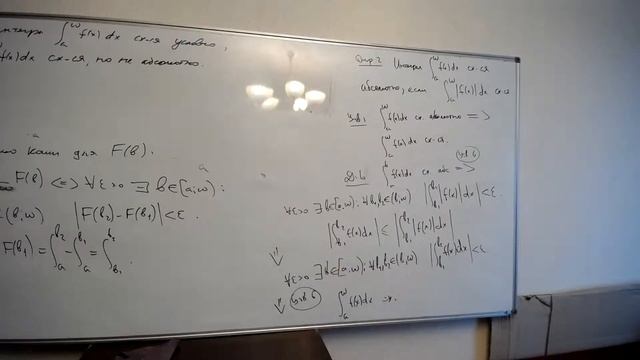 ∫_a^ω f(x) dx сх-ся условно,
f(x)dx сх-ся, но не абсолютно.
Коши для F(b).
F(b) <=> ∀ε>0 ∃ b∈[a;ω):
(b;ω) |F(b₂)-F(b₁)|<ε.
F(b₁) = ∫_a^{b₂} - ∫_a^{b₁} = ∫_{b₁}^{b₂}
Опр.2 Интеграл ∫_a^ω f(x)dx сх-ся
абсолютно, если ∫_a^ω |f(x)| dx сх-ся
∫_a^ω f(x)dx сх. абсолютно =>
∫_a^ω f(x)dx сх-ся.
Д-во ∫_a^ω f(x)dx сх. абс =>
∀ε>0 ∃ b∈[a;ω): ∀b₁,b₂∈(b;ω) |∫_{b₁}^{b₂} |f(x)| dx|<ε.
|∫_{b₁}^{b₂} f(x)dx| ≤ |∫_{b₁}^{b₂} |f(x)| dx|
∀ε>0 ∃ b∈[a;ω): ∀b₁,b₂∈(b;ω) |∫_{b₁}^{b₂} f(x)dx|<ε
∫_a^ω f(x)dx сх.